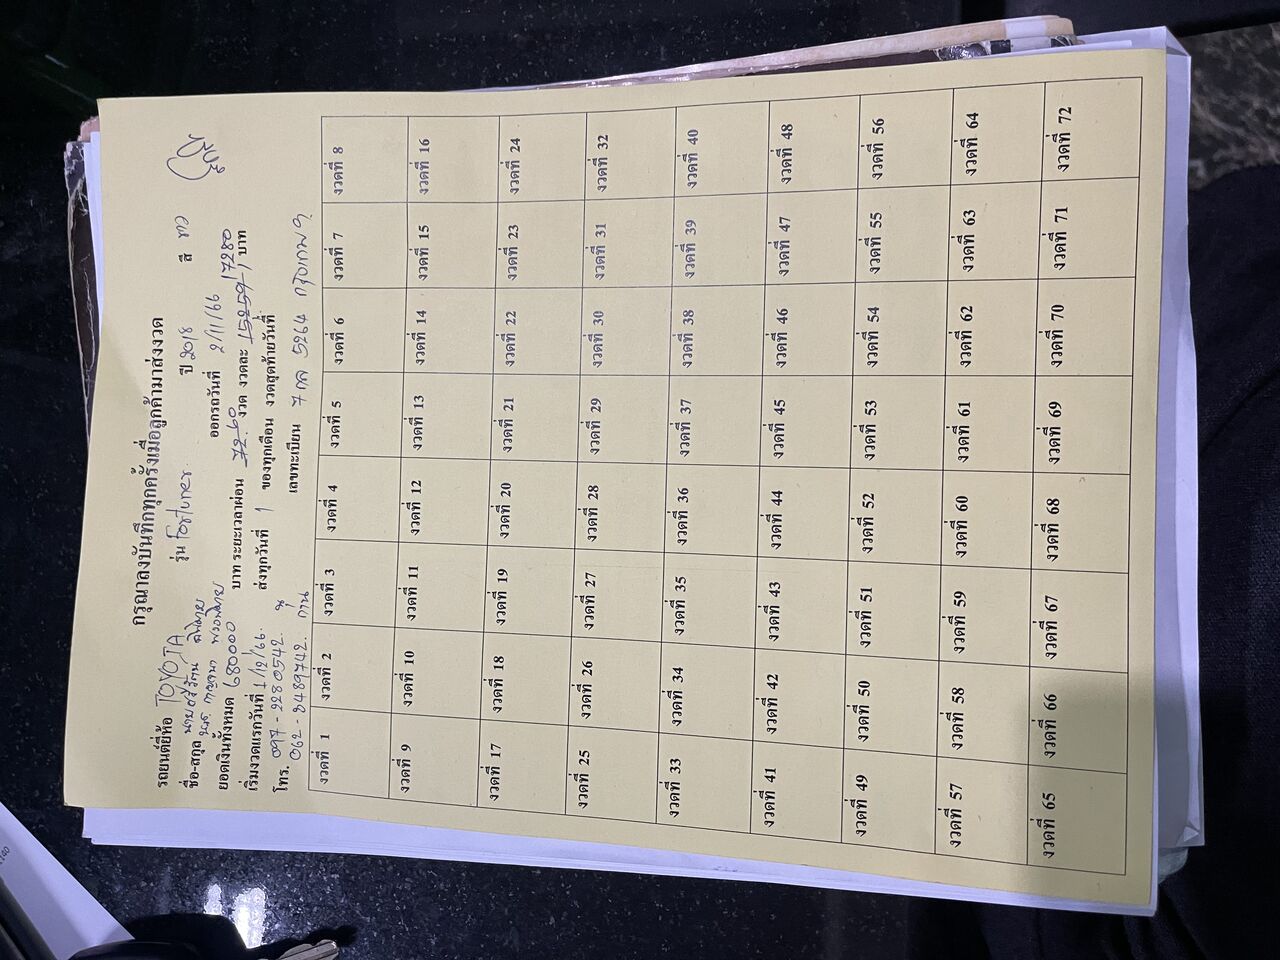 กรุณาลงบันทึกทุกครั้งเมื่อลูกค้ามาส่งงวด
รถยนต์ยี่ห้อ TOYOTA รุ่น Fortuner ปี 2018 สี ขาว
ชื่อ-สกุล นาย ออกรถวันที่ 2/11/66
น.ส. กาญจนา
ยอดเงินทั้งหมด 680000 บาท ระยะเวลาผ่อน 72 60 งวด งวดละ 15259/17280 บาท
เริ่มงวดแรกวันที่ 1/12/66. ส่งทุกวันที่ 1 ของทุกเดือน งวดสุดท้ายวันที่
โทร. 097-2280542. นุ่ เลขทะเบียน 7 กล 5264 กรุงเทพฯ
062-8489742. ก่าน
งวดที่ 1 งวดที่ 2 งวดที่ 3 งวดที่ 4 งวดที่ 5 งวดที่ 6 งวดที่ 7 งวดที่ 8
งวดที่ 9 งวดที่ 10 งวดที่ 11 งวดที่ 12 งวดที่ 13 งวดที่ 14 งวดที่ 15 งวดที่ 16
งวดที่ 17 งวดที่ 18 งวดที่ 19 งวดที่ 20 งวดที่ 21 งวดที่ 22 งวดที่ 23 งวดที่ 24
งวดที่ 25 งวดที่ 26 งวดที่ 27 งวดที่ 28 งวดที่ 29 งวดที่ 30 งวดที่ 31 งวดที่ 32
งวดที่ 33 งวดที่ 34 งวดที่ 35 งวดที่ 36 งวดที่ 37 งวดที่ 38 งวดที่ 39 งวดที่ 40
งวดที่ 41 งวดที่ 42 งวดที่ 43 งวดที่ 44 งวดที่ 45 งวดที่ 46 งวดที่ 47 งวดที่ 48
งวดที่ 49 งวดที่ 50 งวดที่ 51 งวดที่ 52 งวดที่ 53 งวดที่ 54 งวดที่ 55 งวดที่ 56
งวดที่ 57 งวดที่ 58 งวดที่ 59 งวดที่ 60 งวดที่ 61 งวดที่ 62 งวดที่ 63 งวดที่ 64
งวดที่ 65 งวดที่ 66 งวดที่ 67 งวดที่ 68 งวดที่ 69 งวดที่ 70 งวดที่ 71 งวดที่ 72